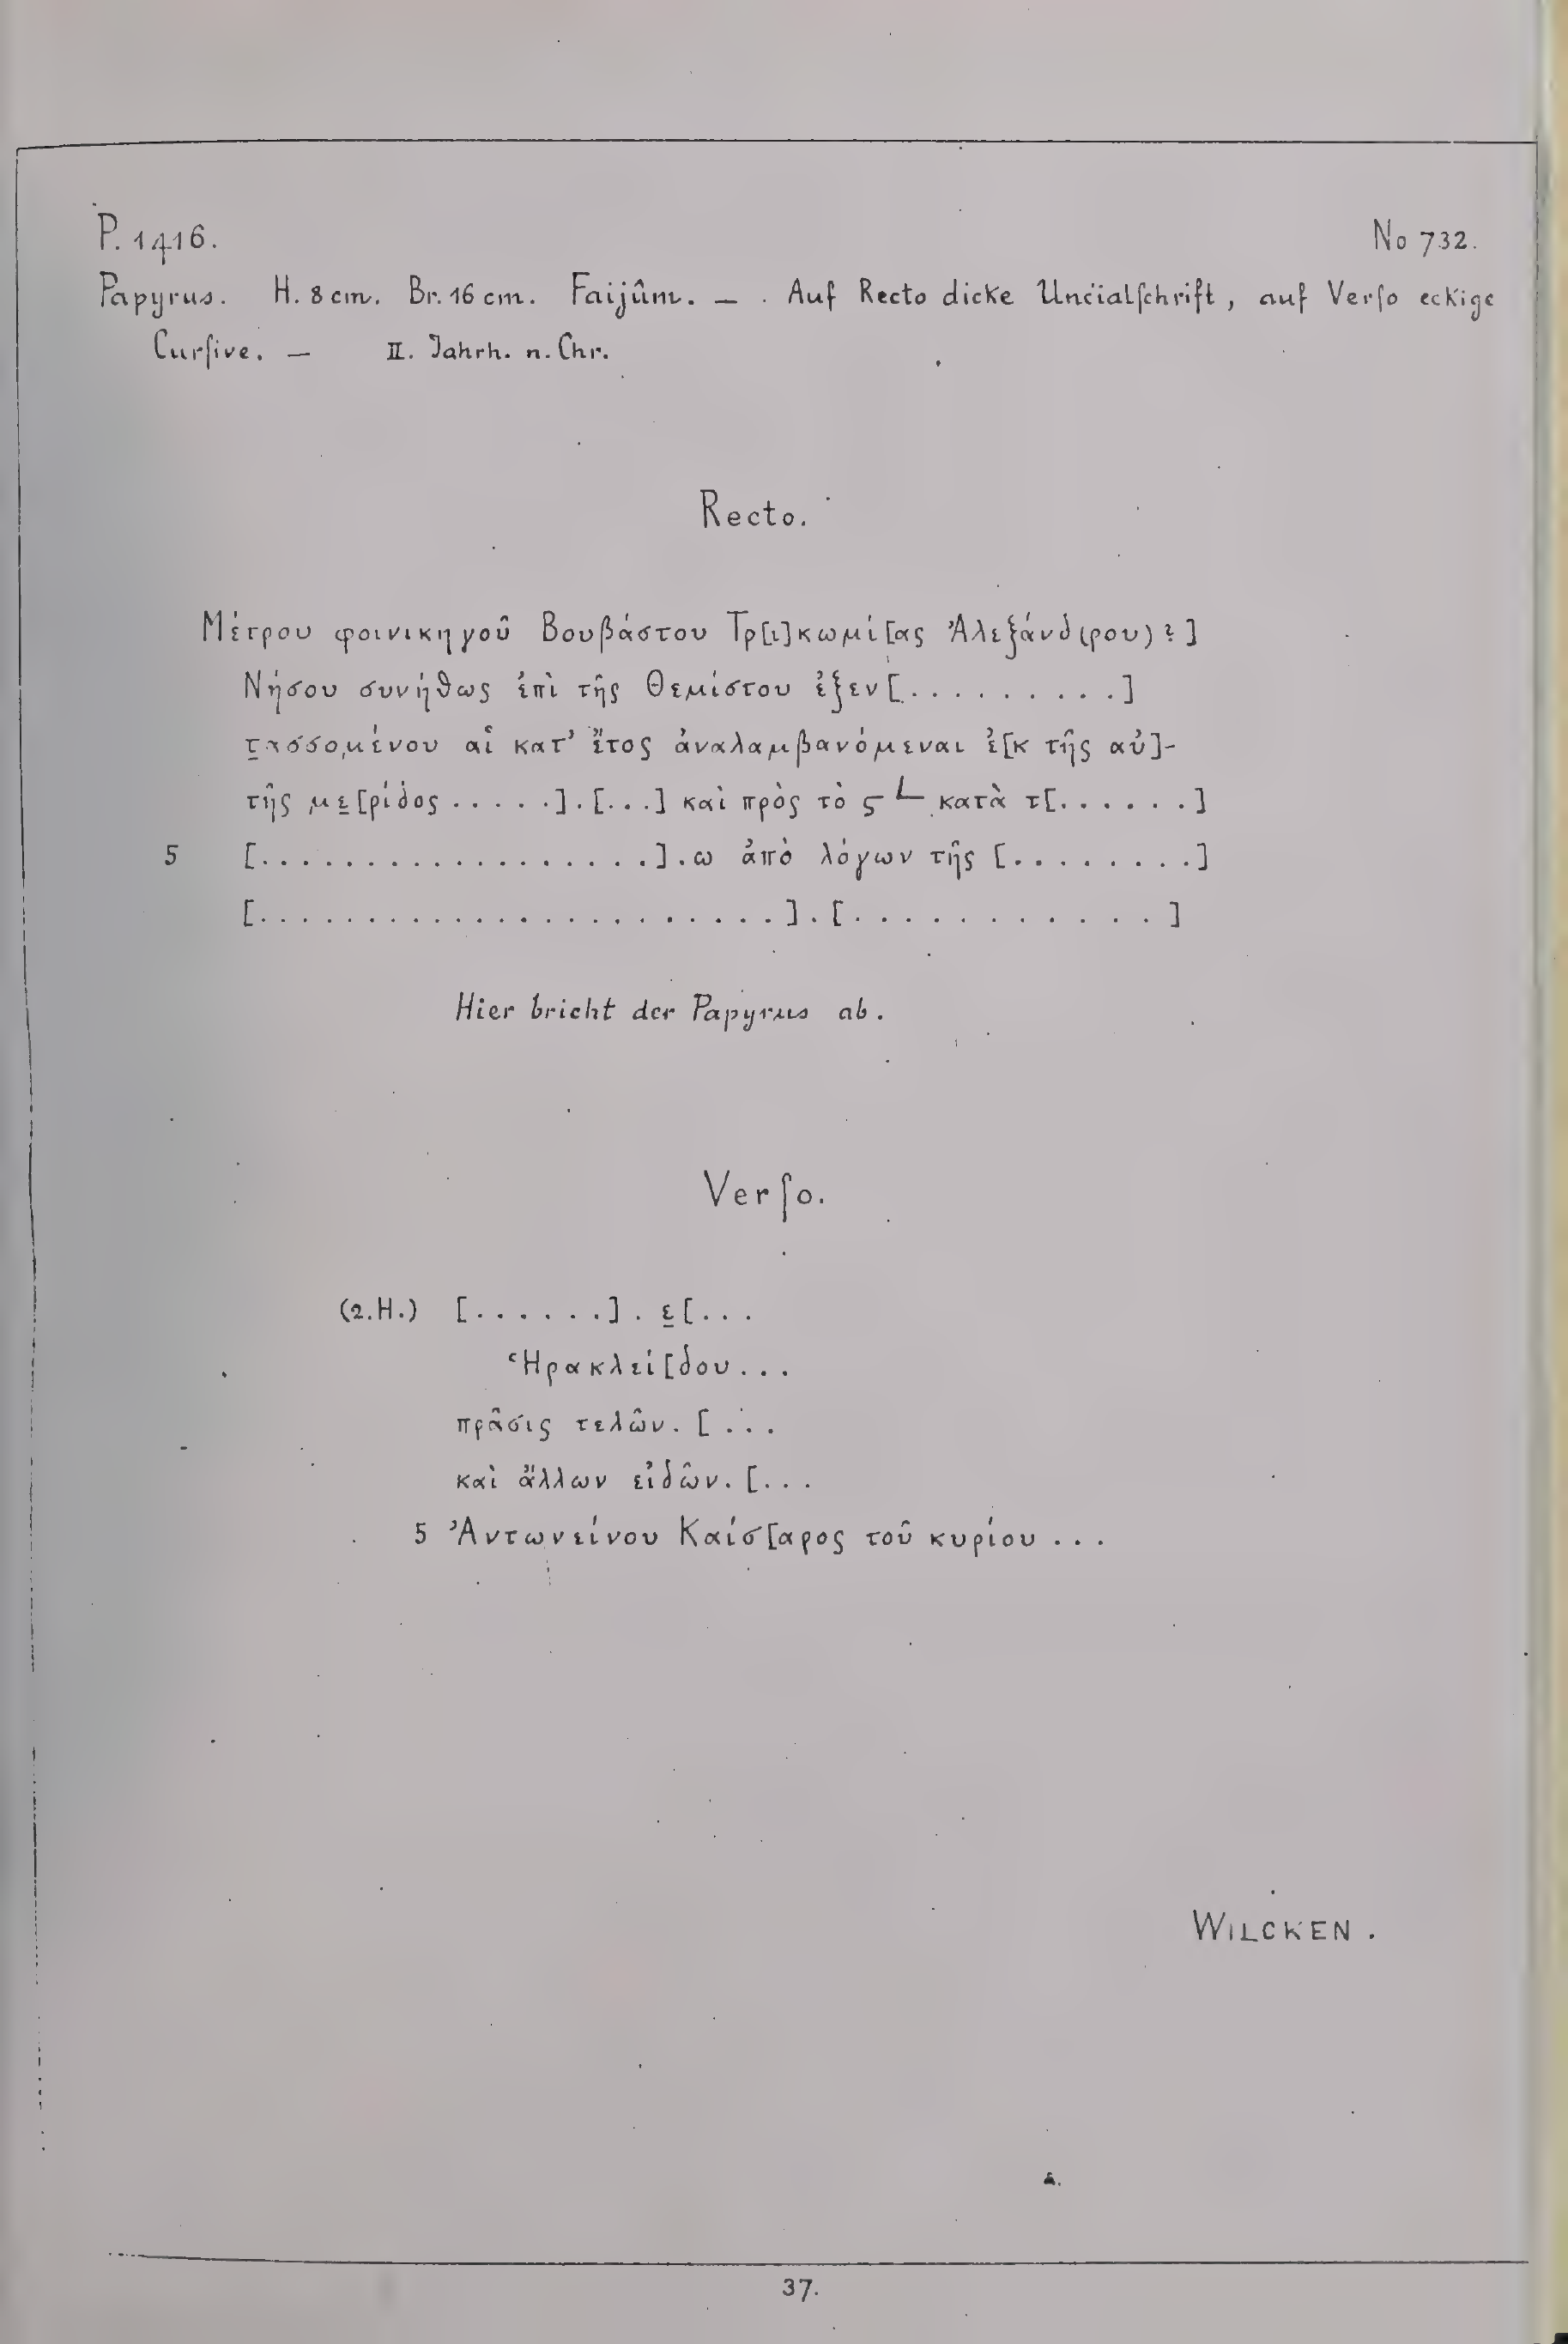 P. 1416. No 732.
Papyrus. H. 8 cm. Br. 16 cm. Faijûm. — . Auf Recto dicke Uncialſchrift, auf Verſo eckige
Curſive. — II. Jahrh. n. Chr.
Recto.
Μέτρου φοινικηγοῦ Βουβάστου Τρ[ι]κωμί[ας Ἀλεξάνδ(ρου)?]
Νήσου συνήθως ἐπὶ τῆς Θεμίστου ἐξεν[. . . . . . . . . .]
τ̲α̣σσομένου αἱ κατ’ ἔτος ἀναλαμβανόμεναι ἐ[κ τῆς αὐ]-
τῆς με̲[ρίδος . . . . .] . [. . .] καὶ πρὸς τὸ ϛ L κατὰ τ[. . . . . .]
5 [. . . . . . . . . . . . . . . . . . .] . ω ἀπὸ λόγων τῆς [. . . . . . . .]
[. . . . . . . . . . . . . . . . . . . . . . . .] . [. . . . . . . . . . . .]
Hier bricht der Papyrus ab.
Verſo.
(2. H.) [. . . . . .] . ε̲[. . .
Ἡρακλεί[δου . . .
πρᾶσις τελῶν. [. . .
καὶ ἄλλων εἰδῶν. [. . .
5 Ἀντωνείνου Καίσ[αρος τοῦ κυρίου . . .
WILCKEN.
37.